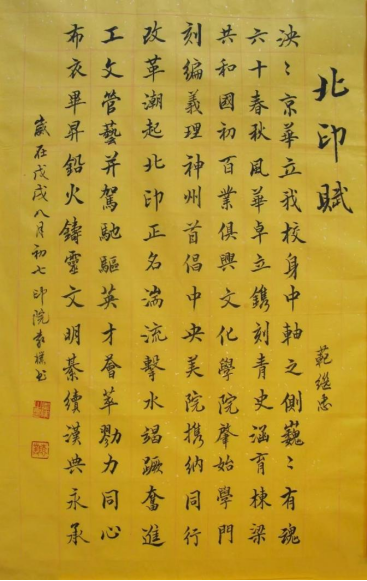 北印賦
範繼忠
泱〻京華立我校身中軸之側巍〻有魂
六十春秋風華卓立鐫刻青史涵育棟梁
共和國初百業俱興文化學院肇始學門
刻編義理神州首倡中央美院携納同行
改革潮起北印正名湍流擊水竭蹶奮進
工文管藝并駕馳驅英才薈萃勠力同心
布衣畢昇鉛火鑄靈文明綦續漢典永承
歲在戊戌八月初七印院書